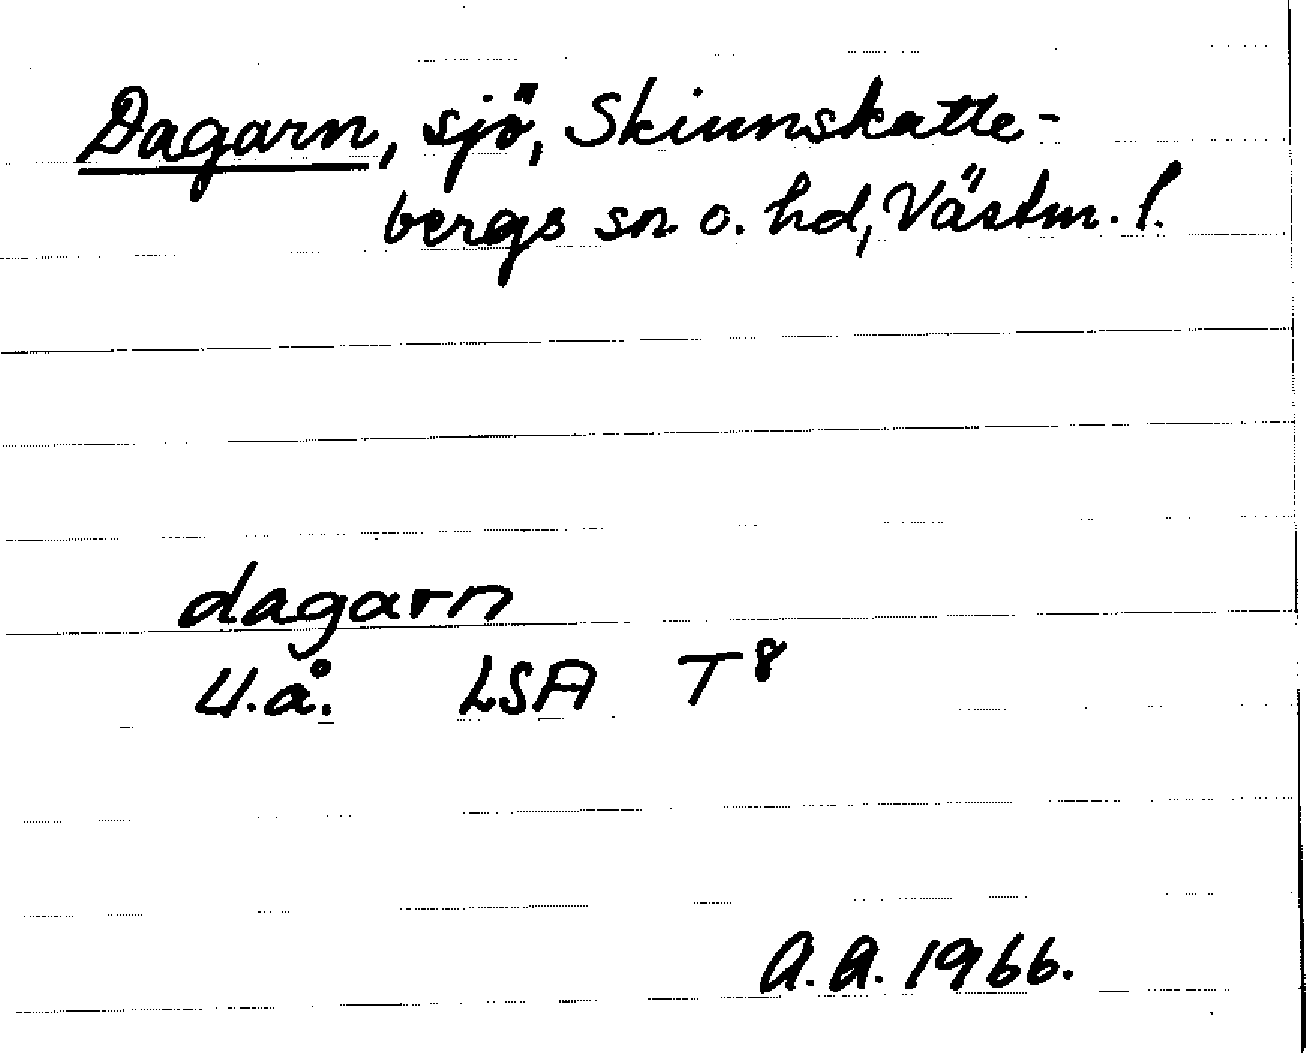 Dagarn, sjö, Skinnskatte-
bergs sn o. hd, Västm. l.
dagarn
U.å. LSA T8
A.A. 1966.